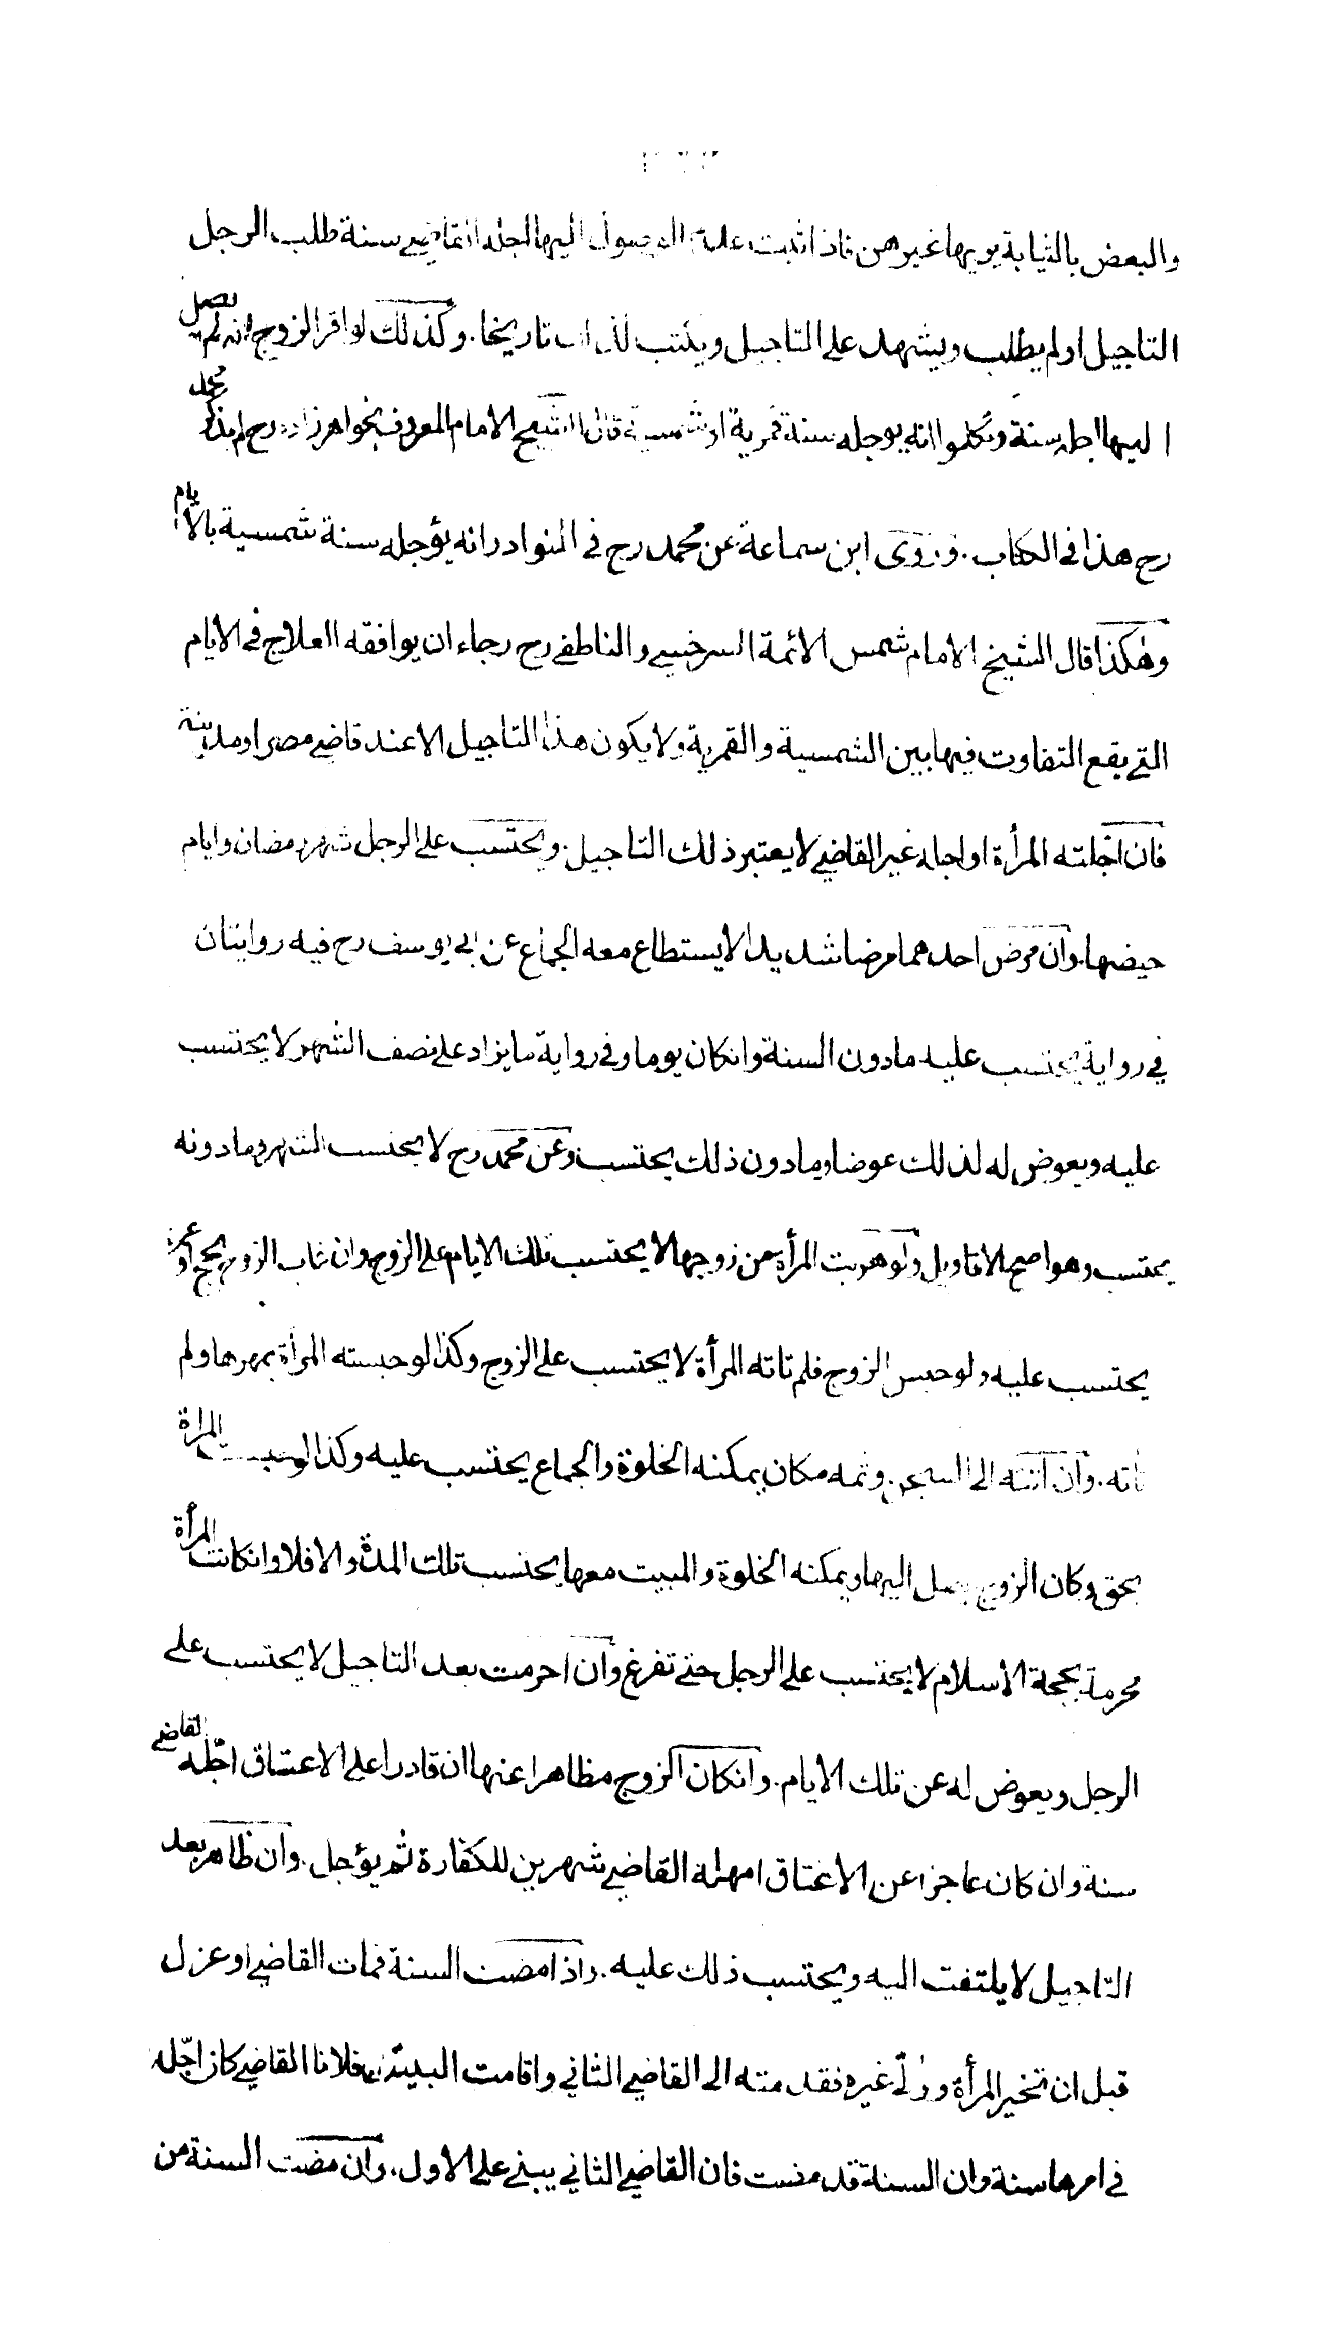 والبعض بالثيابة يريها غيرهن فاذا ثبت عدم الوصول اليها اجله القاضي سنة طلب الرجل
التاجيل او لم يطلب ويشهد على التاجيل ويكتب لذلك تاريخا . وكذلك لو اقر الزوج انه لم يصل
اليها اجله سنة وتكلموا انه يوجله سنة قمرية او شمسية قال الشيخ الامام المعروف بخواهر زاده رح لم يذكر محمد
رح هذا في الكتاب . وروى ابن سماعة عن محمد رح في النوادر انه يؤجله سنة شمسية بالايام
وهكذا قال الشيخ الامام شمس الائمة السرخسي والناطفي رح رجاء ان يوافقه العلاج في الايام
التي يقع التفاوت فيها بين الشمسية والقمرية ولا يكون هذا التاجيل الا عند قاضي مصر او مدينة
فان اجلته المرأة او اجله غير القاضي لا يعتبر ذلك التاجيل . ويحتسب على الرجل شهر رمضان وايام
حيضها . وان مرض احدهما مرضا شديدا لا يستطاع معه الجماع عن ابي يوسف رح فيه روايتان
في رواية يحتسب عليه ما دون السنة وانكان يوما وفي رواية ما يزاد على نصف الشهر لا يحتسب
عليه ويعوض له لذلك عوضا وما دون ذلك يحتسب وعن محمد رح لا يحتسب الشهر وما دونه
يحتسب وهو اصح الاقاويل ولو هربت المرأة من زوجها لا يحتسب تلك الايام على الزوج وان غاب الزوج بحج او عمرة
يحتسب عليه ولو حبس الزوج فلم تاته المرأة لا يحتسب على الزوج وكذا لو حبسته المرأة بمهرها ولم
تاته . وان اتته الى السجن وثمه مكان يمكنه الخلوة والجماع يحتسب عليه وكذا لو حبست المراة
بحق وكان الزوج يصل اليها ويمكنه الخلوة والمبيت معها يحتسب تلك المدة والا فلا وانكانت المرأة
محرمة بحجة الاسلام لا يحتسب على الرجل حتى تفرغ وان احرمت بعد التاجيل لا يحتسب على
الرجل ويعوض له عن تلك الايام . وانكان الزوج مظاهرا عنها ان قادرا على الاعتاق اجّله القاضي
سنة وان كان عاجزا عن الاعتاق امهله القاضي شهرين للكفارة ثم يؤجل . وان ظاهر بعد
التاجيل لا يلتفت اليه ويحتسب ذلك عليه . واذا مضت السنة فمات القاضي او عزل
قبل ان تخير المرأة وولّي غيره فقدمته الى القاضي الثاني واقامت البينة ان فلانا القاضي كان اجّله
في امرها سنة وان السنة قد مضت فان القاضي الثاني يبني على الاول . وان مضت السنة من